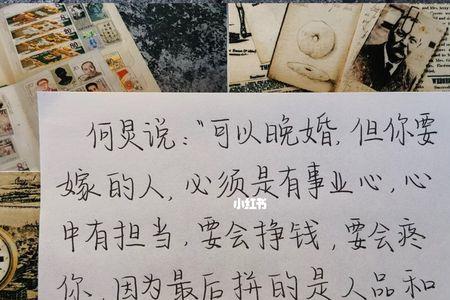 何炅说:“可以晚婚,但你要
嫁的人,必须是有事业心,心
小红书
中有担当,要会挣钱,要会疼
你,因为最后拼的是人品和